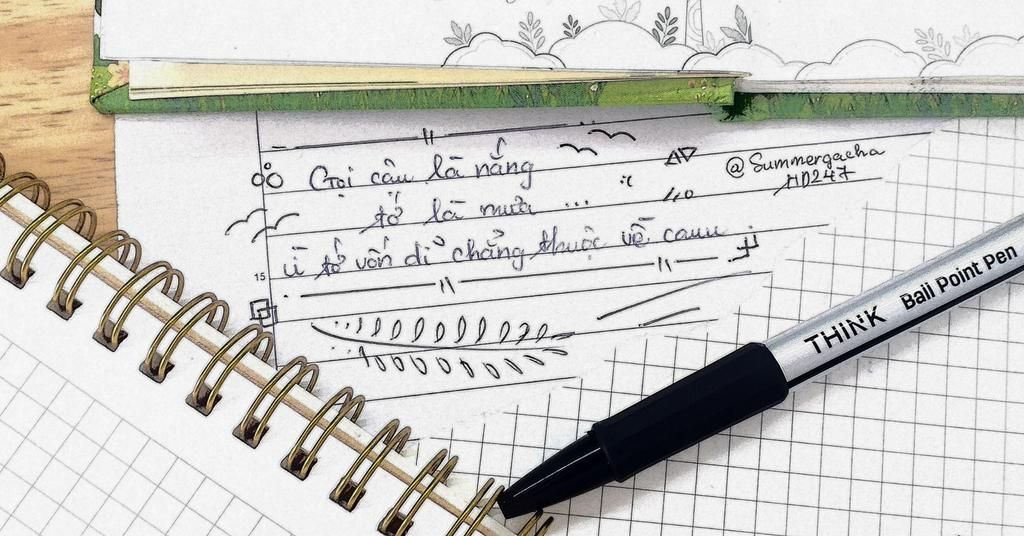 Gọi cậu là nắng
tớ là mưa ...
Vì tớ vốn dĩ chẳng thuộc về cậu
@Summergacha
HD247
15
THINK Ball Point Pen